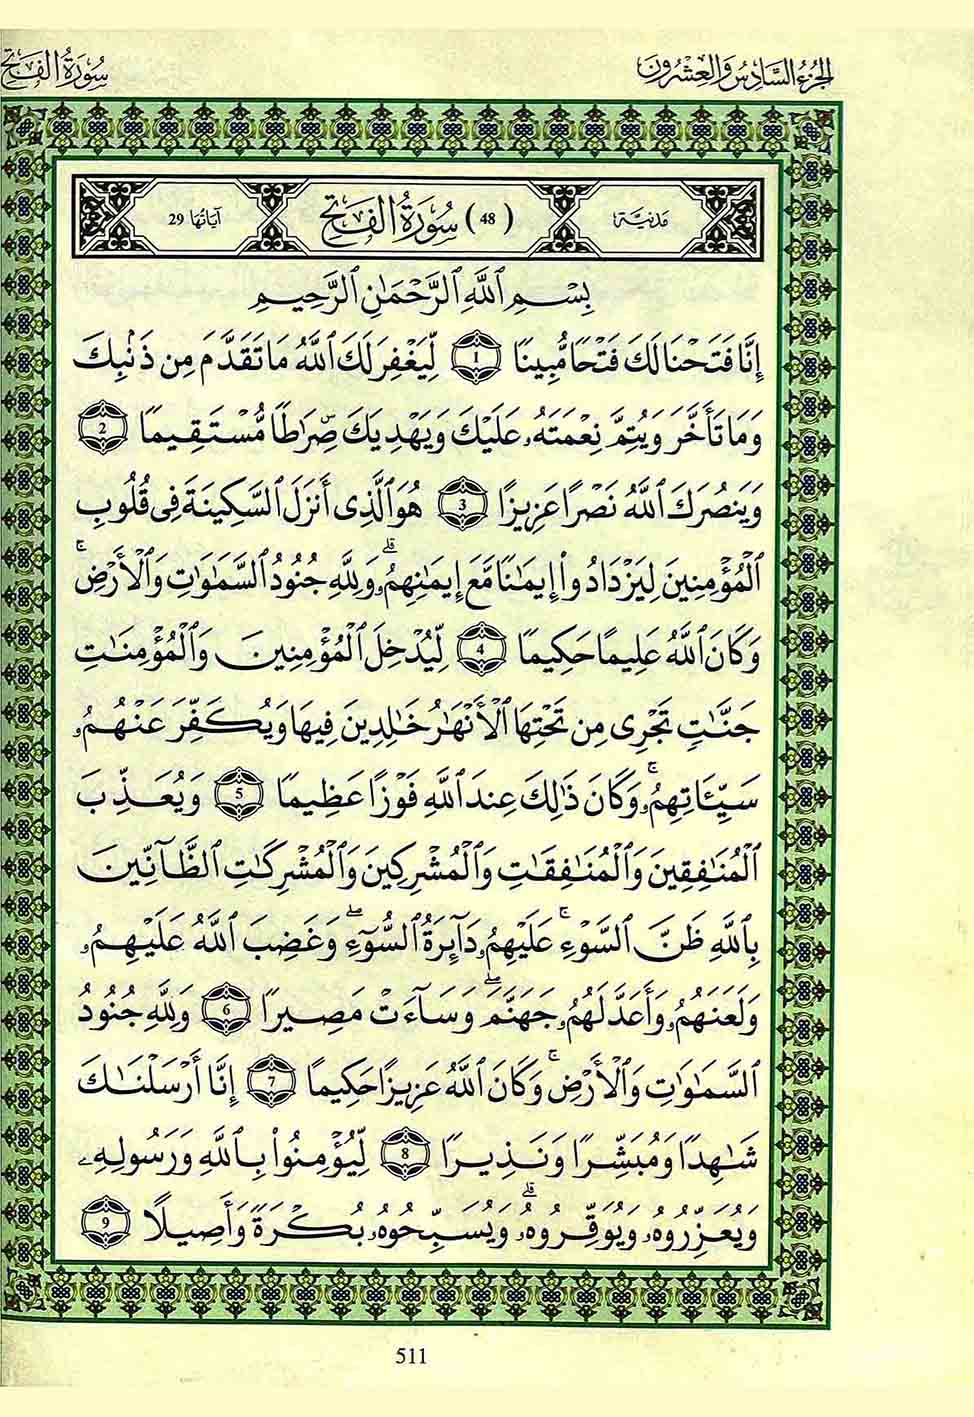 الجزء السادس والعشرون
سورة الفتح
مدنية
(48) سُورَةُ الفَتْحِ
آياتها 29
بِسْمِ ٱللَّهِ ٱلرَّحْمَٰنِ ٱلرَّحِيمِ
إِنَّا فَتَحْنَا لَكَ فَتْحًا مُّبِينًا 1 لِّيَغْفِرَ لَكَ ٱللَّهُ مَا تَقَدَّمَ مِن ذَنۢبِكَ
وَمَا تَأَخَّرَ وَيُتِمَّ نِعْمَتَهُۥ عَلَيْكَ وَيَهْدِيَكَ صِرَٰطًا مُّسْتَقِيمًا 2
وَيَنصُرَكَ ٱللَّهُ نَصْرًا عَزِيزًا 3 هُوَ ٱلَّذِى أَنزَلَ ٱلسَّكِينَةَ فِى قُلُوبِ
ٱلْمُؤْمِنِينَ لِيَزْدَادُوا۟ إِيمَٰنًا مَّعَ إِيمَٰنِهِمُۥ ۗ وَلِلَّهِ جُنُودُ ٱلسَّمَٰوَٰتِ وَٱلْأَرْضِ ۚ
وَكَانَ ٱللَّهُ عَلِيمًا حَكِيمًا 4 لِّيُدْخِلَ ٱلْمُؤْمِنِينَ وَٱلْمُؤْمِنَٰتِ
جَنَّٰتٍ تَجْرِى مِن تَحْتِهَا ٱلْأَنْهَٰرُ خَٰلِدِينَ فِيهَا وَيُكَفِّرَ عَنْهُمُۥ
سَيِّـَٔاتِهِمُۥ ۚ وَكَانَ ذَٰلِكَ عِندَ ٱللَّهِ فَوْزًا عَظِيمًا 5 وَيُعَذِّبَ
ٱلْمُنَٰفِقِينَ وَٱلْمُنَٰفِقَٰتِ وَٱلْمُشْرِكِينَ وَٱلْمُشْرِكَٰتِ ٱلظَّآنِّينَ
بِٱللَّهِ ظَنَّ ٱلسَّوْءِ ۚ عَلَيْهِمُۥ دَآئِرَةُ ٱلسُّوٓءِ ۖ وَغَضِبَ ٱللَّهُ عَلَيْهِمُۥ
وَلَعَنَهُمُۥ وَأَعَدَّ لَهُمُۥ جَهَنَّمَ ۖ وَسَآءَتْ مَصِيرًا 6 وَلِلَّهِ جُنُودُ
ٱلسَّمَٰوَٰتِ وَٱلْأَرْضِ ۚ وَكَانَ ٱللَّهُ عَزِيزًا حَكِيمًا 7 إِنَّا أَرْسَلْنَٰكَ
شَٰهِدًا وَمُبَشِّرًا وَنَذِيرًا 8 لِّيُؤْمِنُوا۟ بِٱللَّهِ وَرَسُولِهِۦ
وَيُعَزِّرُوهُۥ وَيُوَقِّرُوهُۥ ۗ وَيُسَبِّحُوهُۥ بُكْرَةً وَأَصِيلًا 9
511